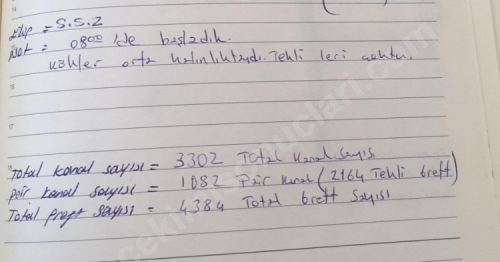 Ekip = S.S.Z
Not = 08⁰⁰ 'de başladık.
Kökler orta kalınlıktaydı. Tekli leri çoktu.
16
17
Total kanal sayısı = 3302 Total Kanal sayısı
Pair kanal sayısı = 1082 Pair Kanal (2164 Tekli Greft)
Total greft sayısı = 4384 Total Greft Sayısı